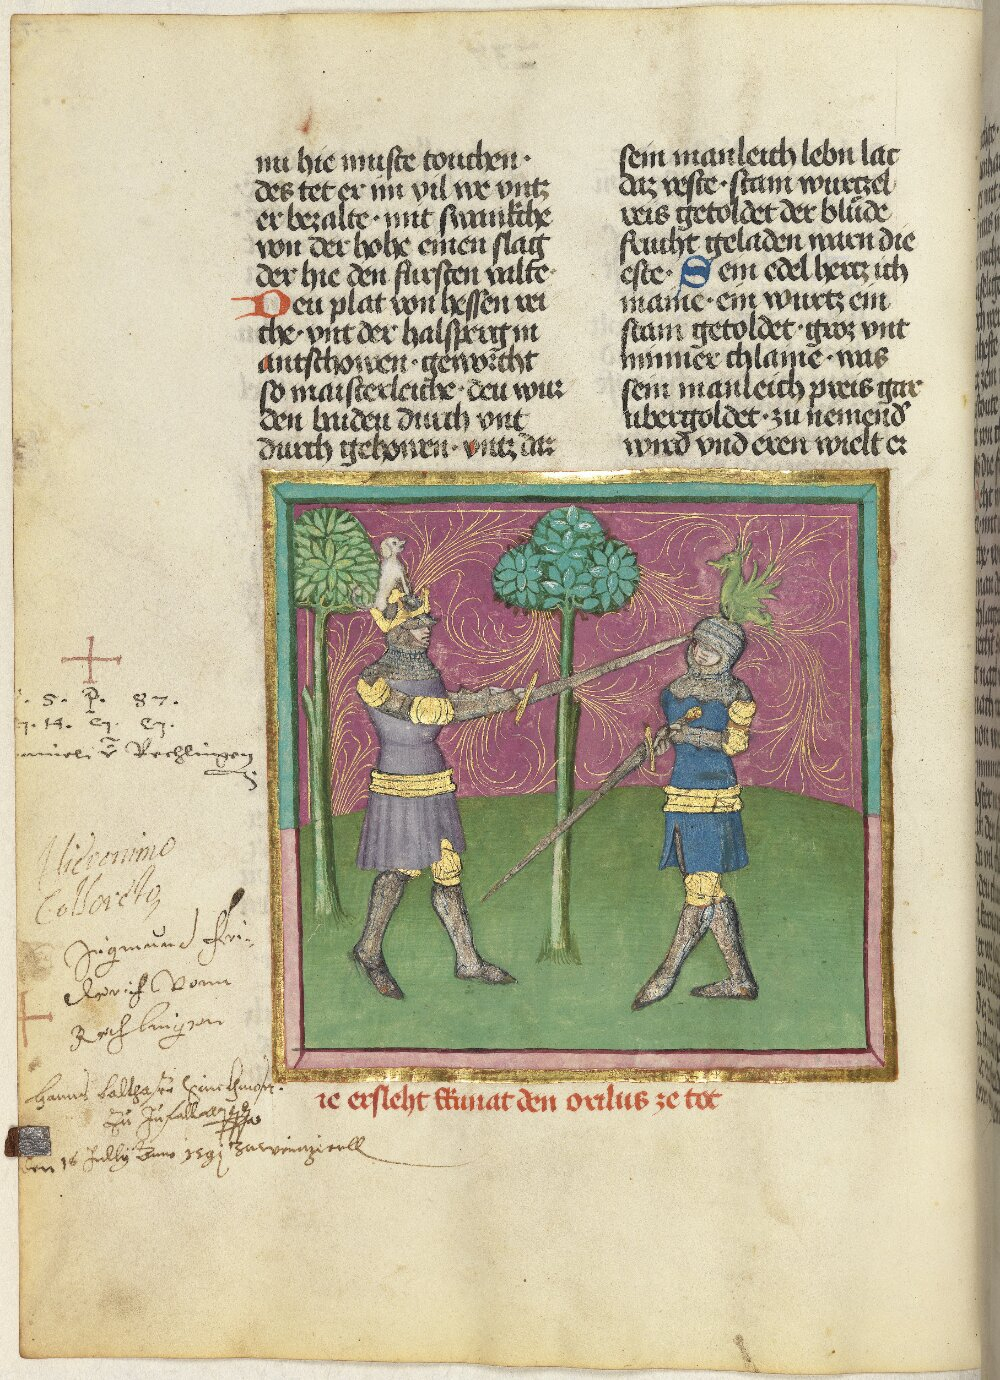 nu hie muste touchen ·
des tet er im vil we vntz
er bezalte · mit swankche
von der hohe einen slag
der hie den fursten valte ·
Deu plat von hessen rei
che · vnt der halsperg in
antschowen · geworcht
so maisterleiche · deu wur
den baiden durch vnt
durch gehowen · vntz daz
sein manleich lebn lac
daz veste · stam wurtzel
reis getoldet der blüde
frucht geladen warn die
este · Sein edel hertz ich
maine · ein wurtz ein
stam getoldet · groz vnt
minner chlaine · was
sein manleich preis gar
ubergoldet · zu nemend
wird vnd eren wielt er
ie ersleht kkunat den orilus ze tot
. S. P. 87.
Rechlingen
Hieronimo
Colloreto
Sigmund Fri-
derich vonn
Rechlingen
Hanns Balthasar
18 Jully Anno 1591